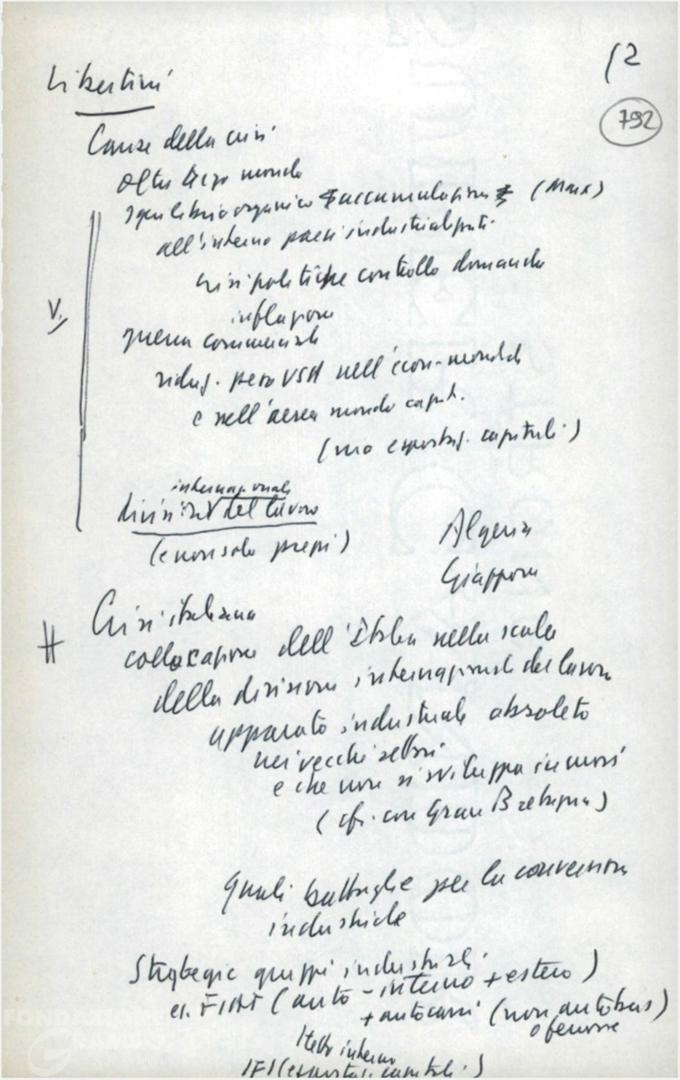 12
792
Libertini
Cause della crisi
oltre terzo mondo
squilibrio organico accumulazione (Marx)
all'interno paesi industrializzati
crisi politiche controllo domanda
V.
inflazione
guerra commerciale
riduz. peso USA nell'econ. mondiale
e nell'area mondo capit.
(ma esportaz. capitali)
internazionale
divisione del lavoro
(e non solo prezzi)
Algeria
Giappone
Crisi italiana
collocazione dell'Italia nella scala
della divisione internazionale del lavoro
apparato industriale obsoleto
nei vecchi settori
e che non si sviluppa in nuovi
(cfr. con Gran Bretagna)
Quali battaglie per la conversione
industriale
Strategie gruppi industriali
es. FIAT (auto - interno + estero)
+ autocarri (non autobus)
o ferrovie
interno
IFI (esportaz. capitali)
FONDAZIONE
GRAMSCI